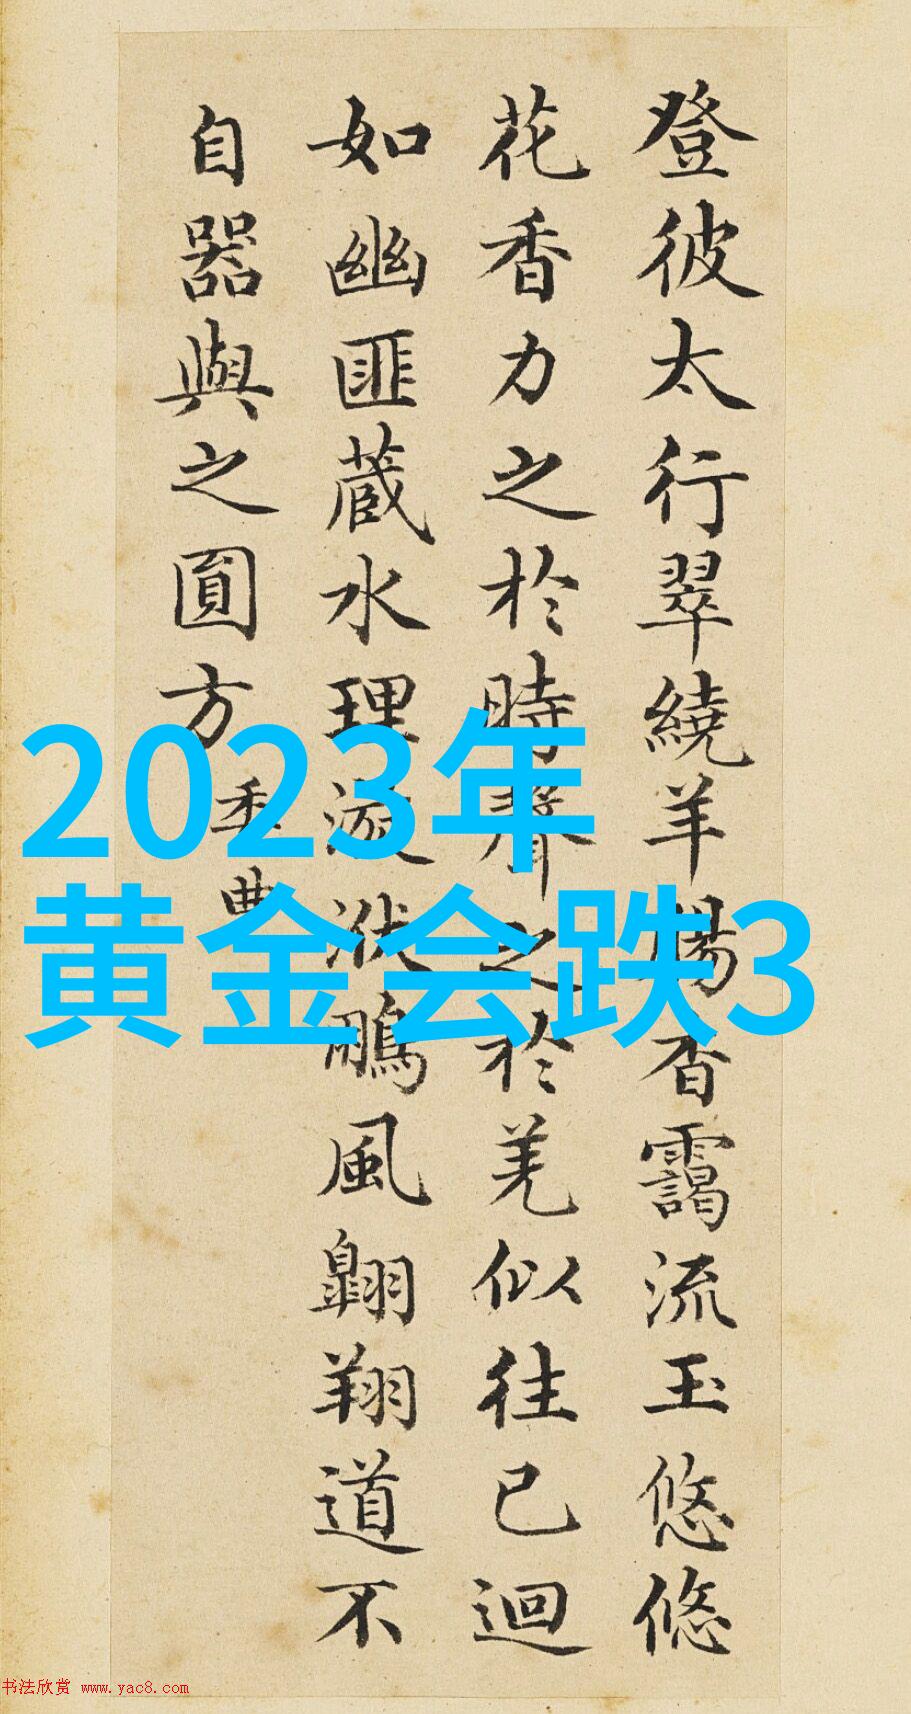 登彼太行翠繞羊腸杳靄流玉悠悠
花香力之於時聲之於羌似往已迴
如幽匪蔵水理漩洑鵬風翺翔道不
自器與之圓方
委曲
2023年
黄金会跌3
书法欣赏 www.yac8.com